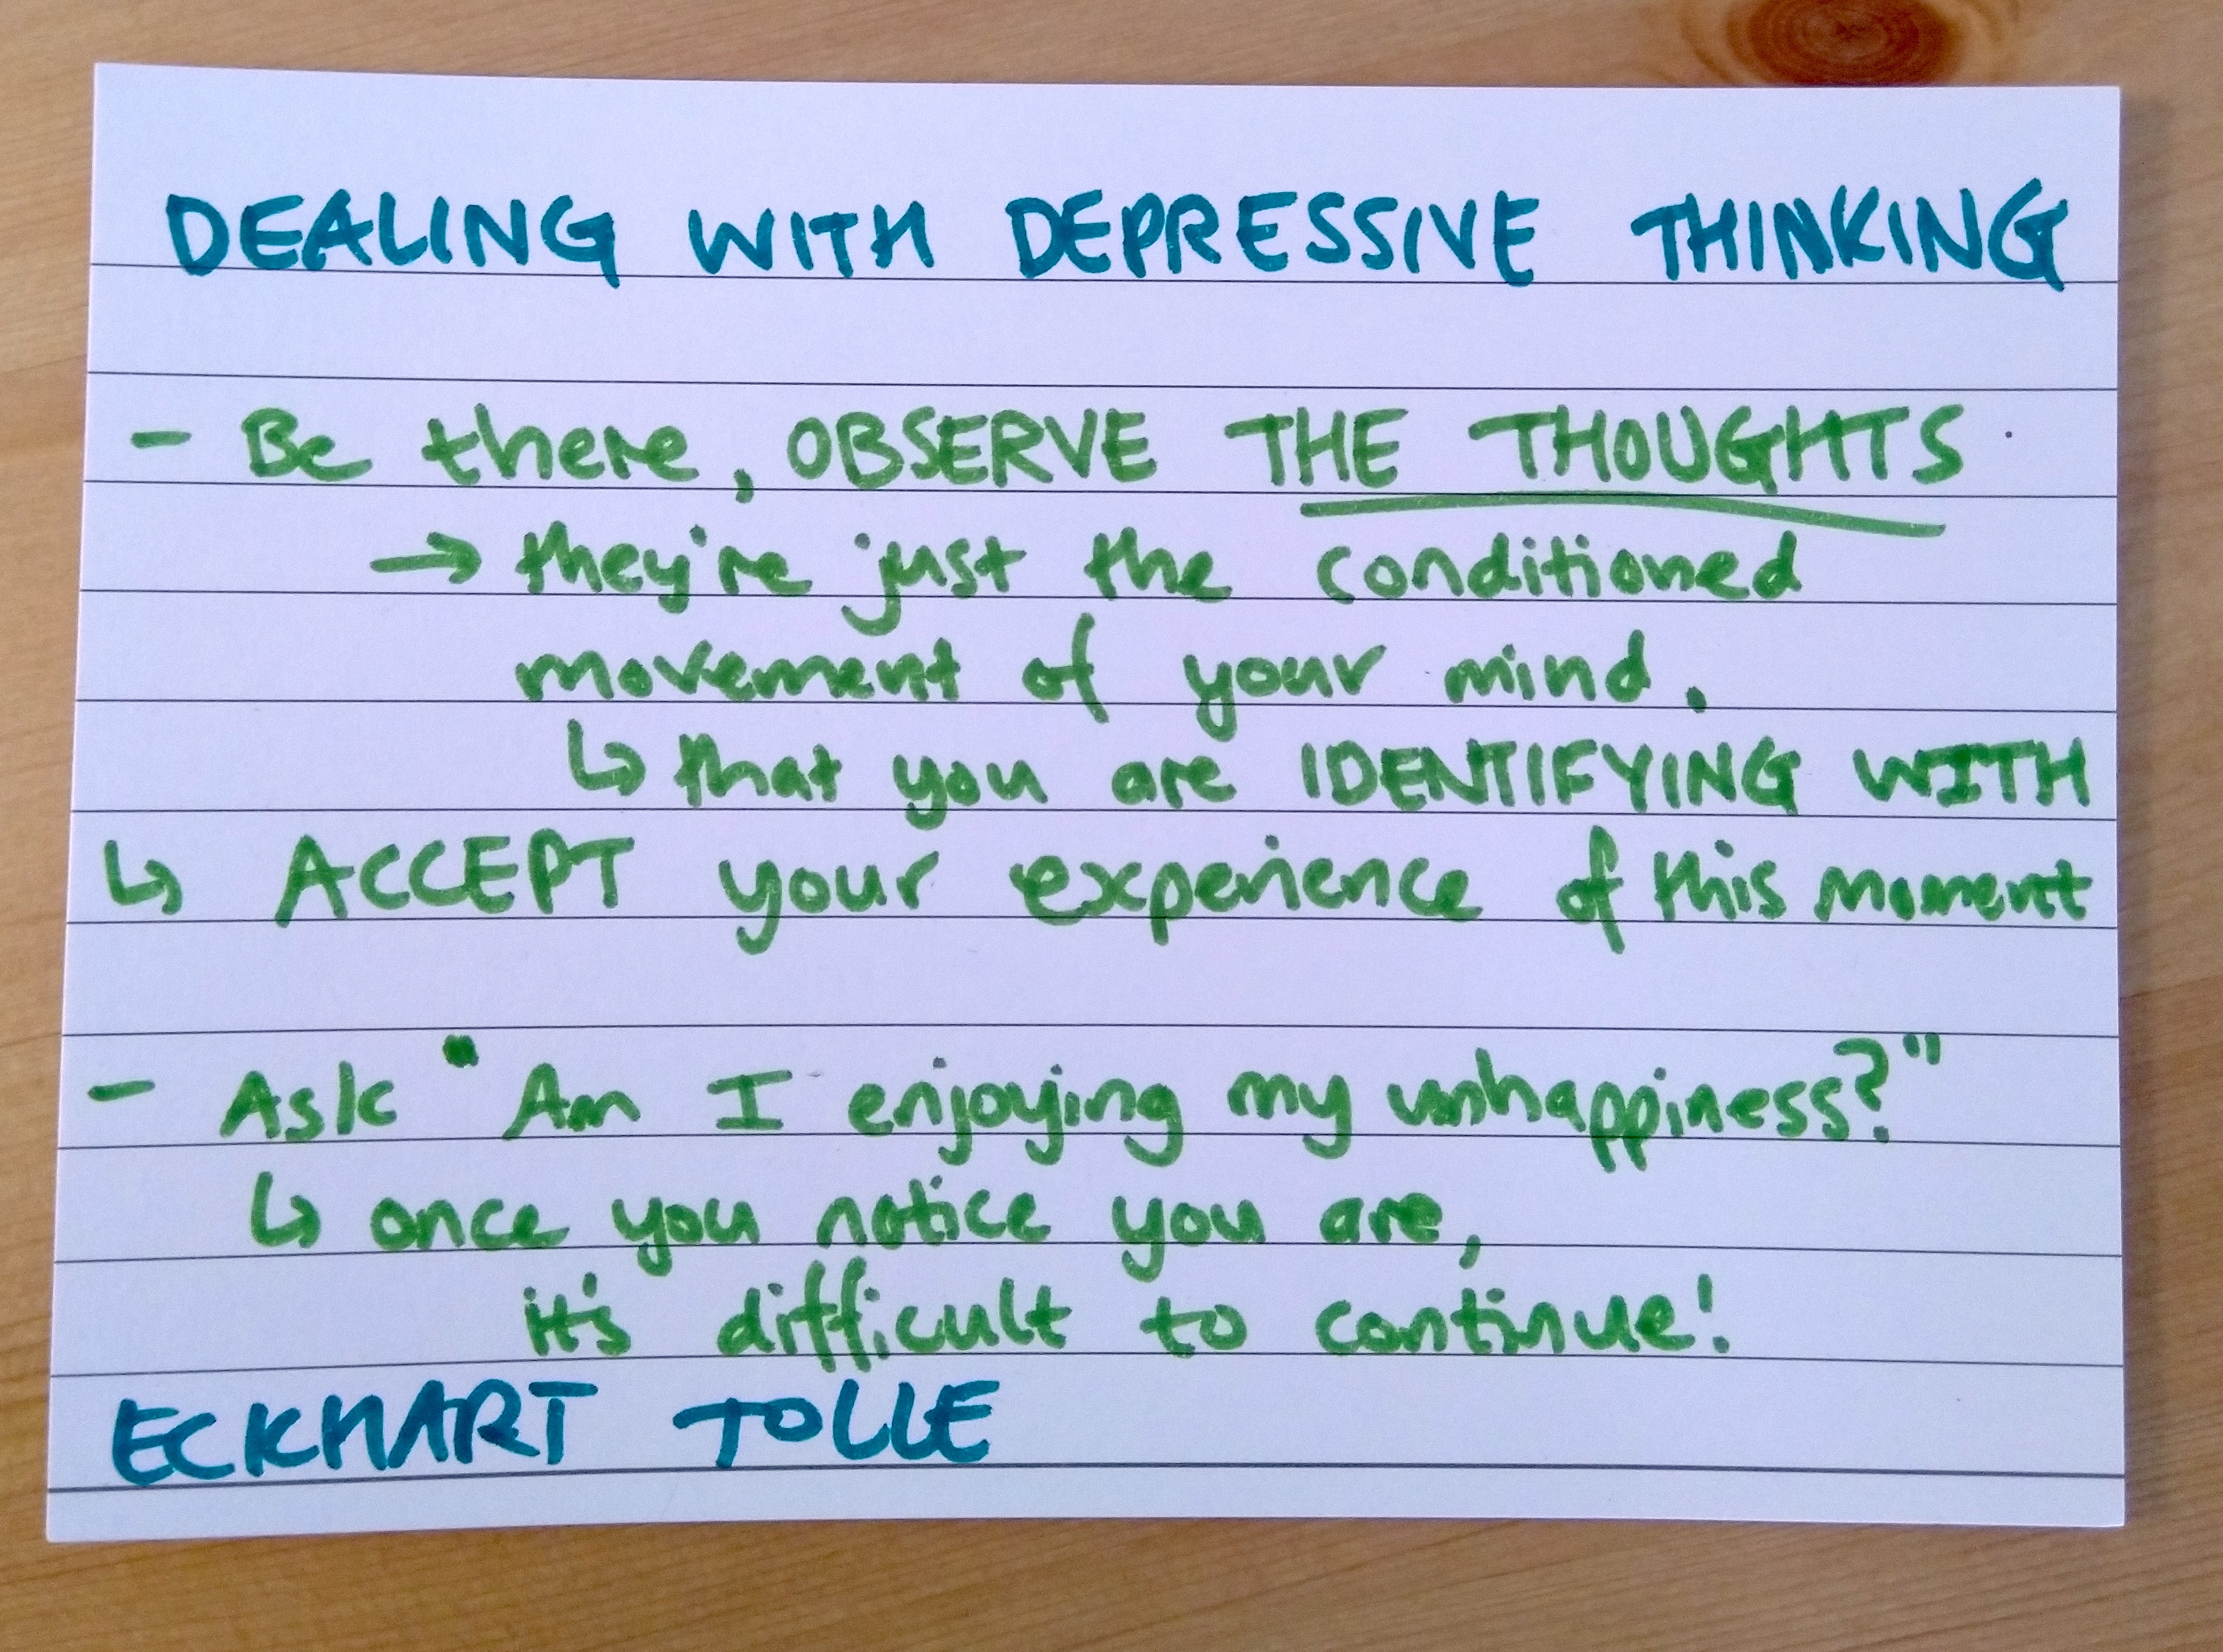 DEALING WITH DEPRESSIVE THINKING
- Be there, OBSERVE THE THOUGHTS
→ they're just the conditioned
movement of your mind.
↳ that you are IDENTIFYING WITH
↳ ACCEPT your experience of this moment
- Ask "Am I enjoying my unhappiness?"
↳ once you notice you are,
it's difficult to continue!
ECKHART TOLLE